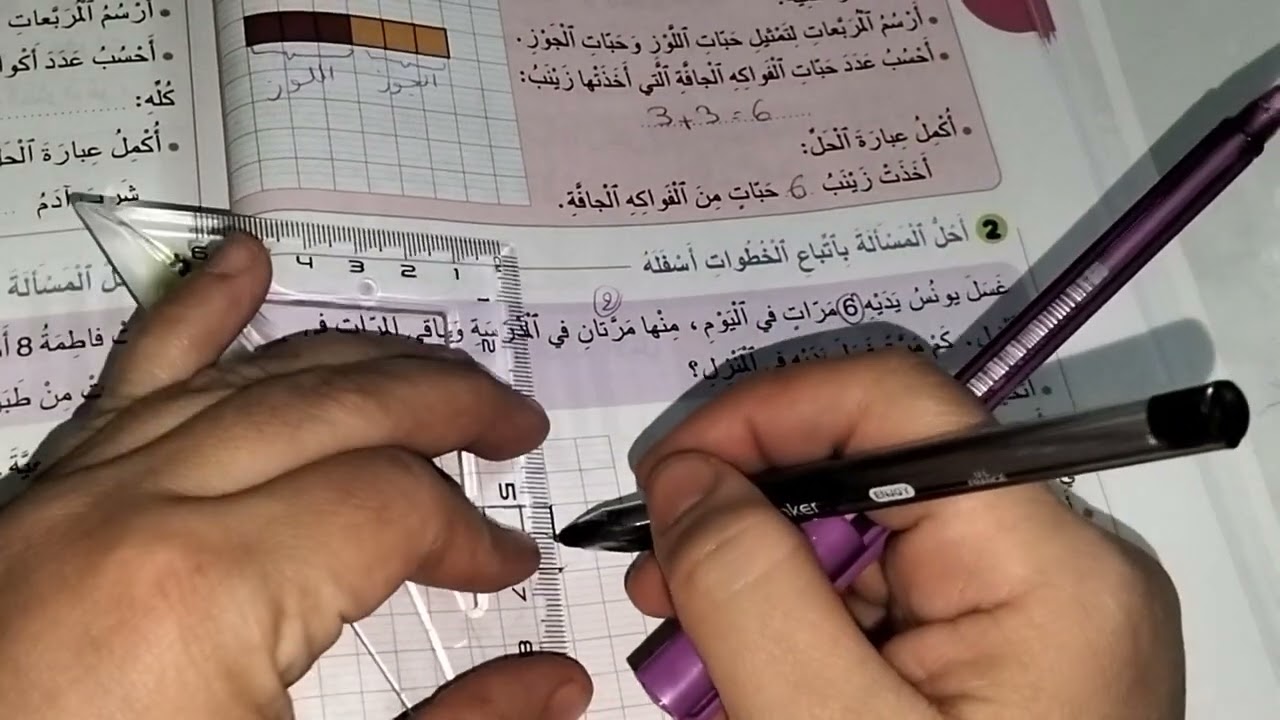 أَرْسُمُ ٱلْمُرَبَّعاتِ لِتَمْثيلِ حَبّاتِ ٱللَّوْزِ وَحَبّاتِ ٱلْجَوْزِ.
أَحْسُبُ عَدَدَ حَبّاتِ ٱلْفَواكِهِ ٱلْجافَّةِ ٱلَّتي أَخَذَتْها زَيْنَبُ:
3+3=6
أُكْمِلُ عِبارَةَ ٱلْحَلِّ:
أَخَذَتْ زَيْنَبُ 6 حَبّاتٍ مِنَ ٱلْفَواكِهِ ٱلْجافَّةِ.
الجوز اللوز
2 أَحُلُّ ٱلْمَسْأَلَةَ بِٱتِّباعِ ٱلْخُطُواتِ أَسْفَلَهُ
غَسَلَ يونُسُ يَدَيْهِ 6 مَرّاتٍ في ٱلْيَوْمِ، مِنْها مَرَّتانِ في ٱلْمَدْرَسَةِ وَباقي ٱلْمَرّاتِ في
2
كَمْ مَرَّةً غَسَلَ يَدَيْهِ في ٱلْمَنْزِلِ؟
أَرْسُمُ ٱلْمُرَبَّعاتِ
أَحْسُبُ عَدَدَ
كُلِّهِ:
أُكْمِلُ عِبارَةَ ٱلْحَلِّ
شَرِبَ آدَمُ
ٱلْمَسْأَلَةَ
فاطِمَةُ 8
مِنْ
6 4 3 2 1
1 2 5 7 8
ENJOY